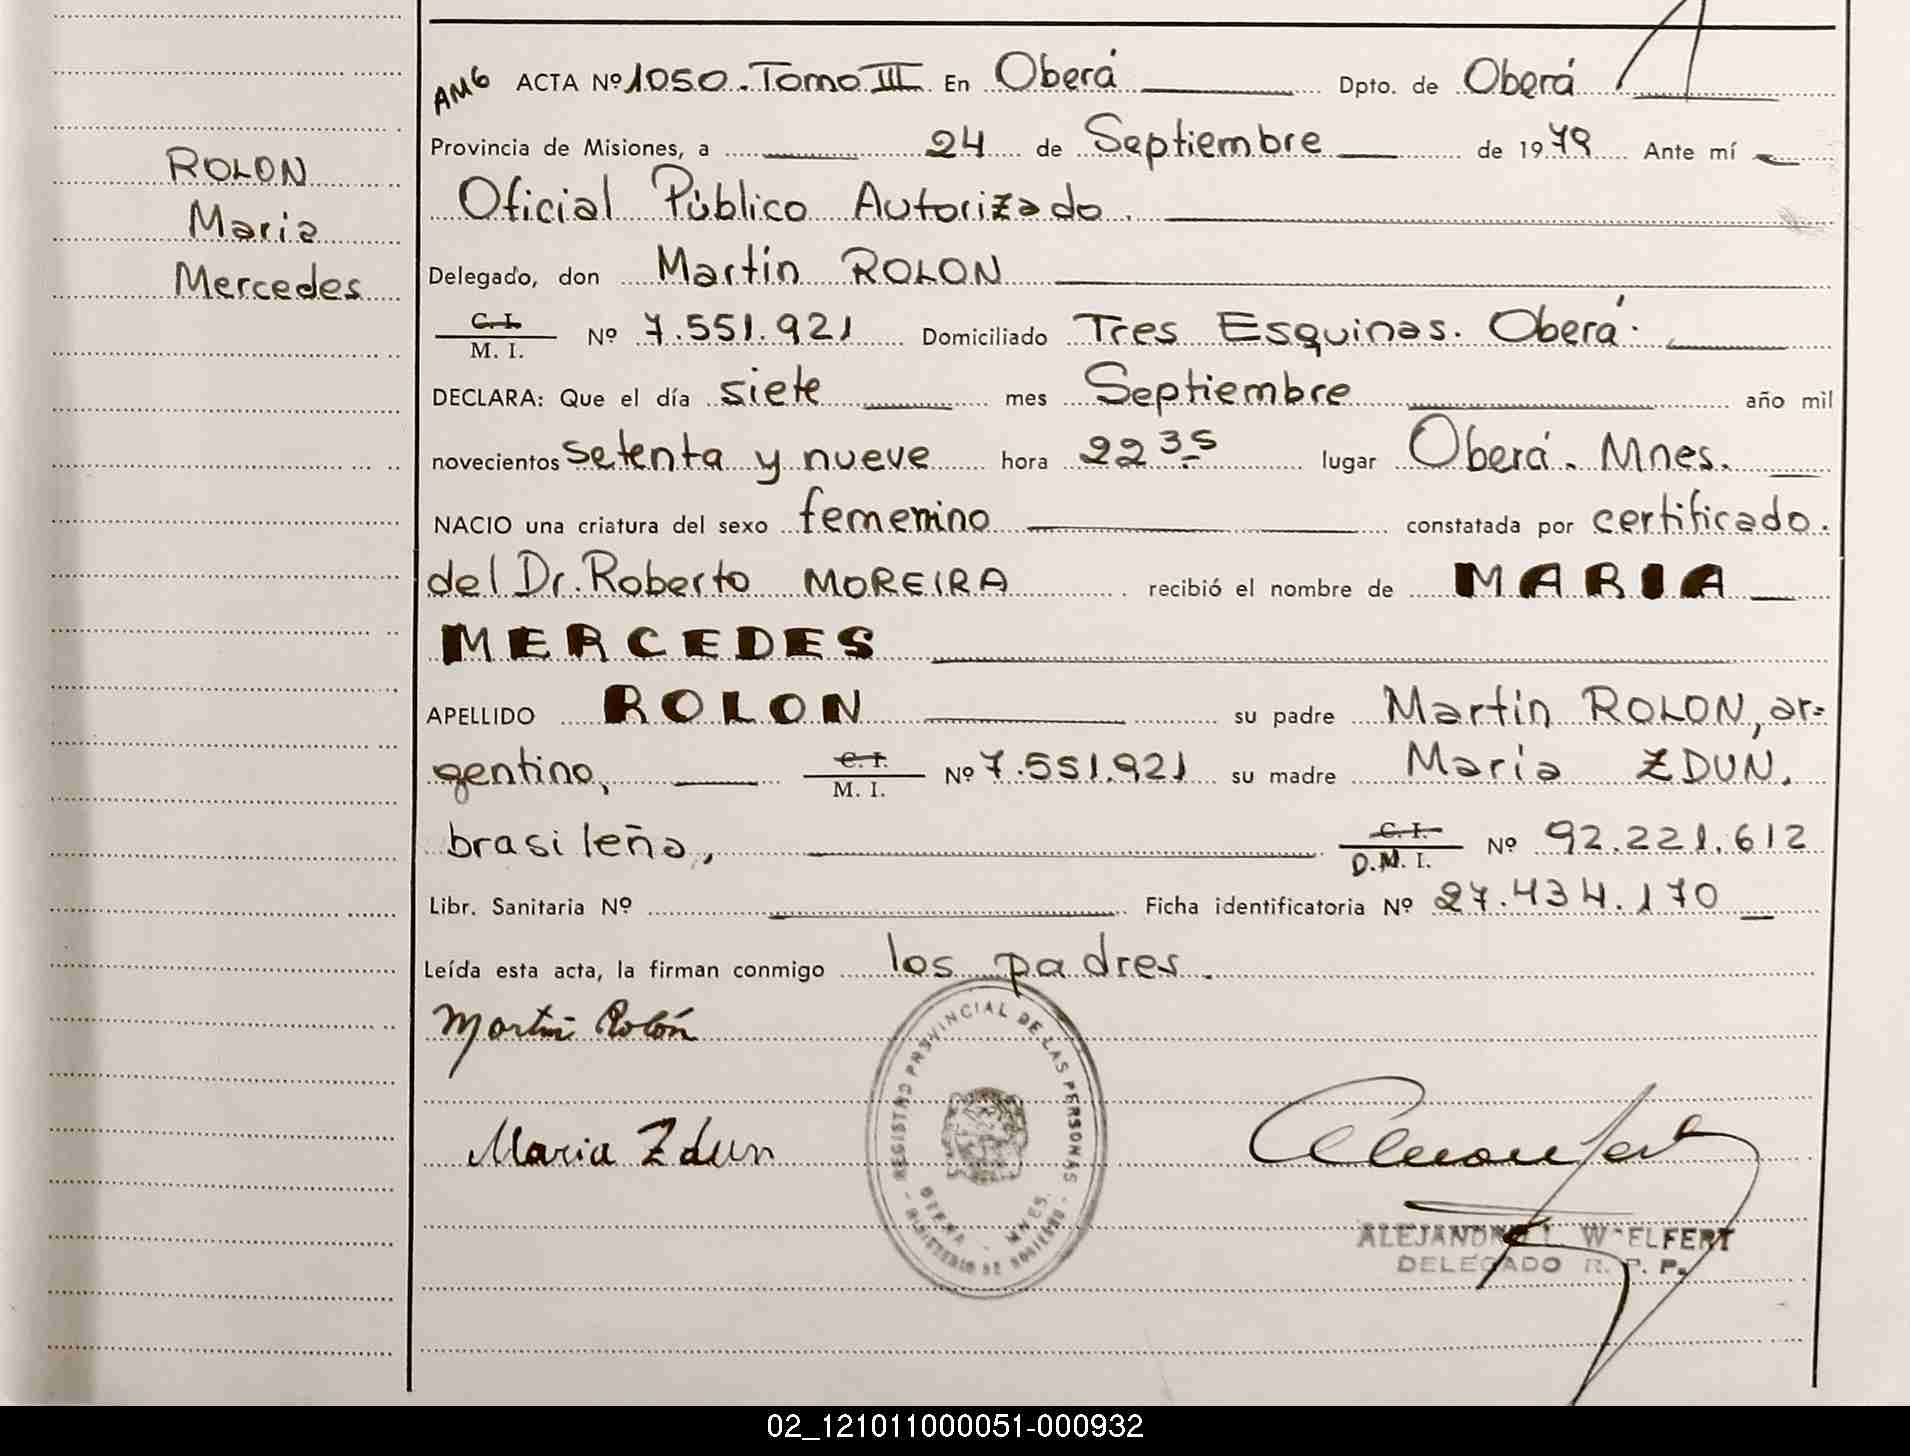 ROLON
Maria
Mercedes
AMG ACTA Nº 1050. Tomo III En Oberá Dpto. de Oberá
Provincia de Misiones, a 24 de Septiembre de 1979 Ante mí
Oficial Público Autorizado.
Delegado, don Martin ROLON
C. I.
M. I. Nº 7.551.921 Domiciliado Tres Esquinas. Oberá.
DECLARA: Que el día siete mes Septiembre año mil
novecientos setenta y nueve hora 22 35 lugar Oberá. Mnes.
NACIO una criatura del sexo femenino constatada por certificado.
del Dr. Roberto MOREIRA recibió el nombre de MARIA
MERCEDES
APELLIDO ROLON su padre Martin ROLON, ar=
gentino, C. I. M. I. Nº 7.551.921 su madre Maria ZDUN.
brasileña, C. I. D.M. I. Nº 92.221.612
Libr. Sanitaria Nº Ficha identificatoria Nº 27.434.170
Leída esta acta, la firman conmigo los padres.
Martin Rolón
Maria Zdun
REGISTRO PROVINCIAL DE LAS PERSONAS
MINISTERIO DE GOBIERNO
MNES.
DELEGADO R. P. P.
02_121011000051-000932